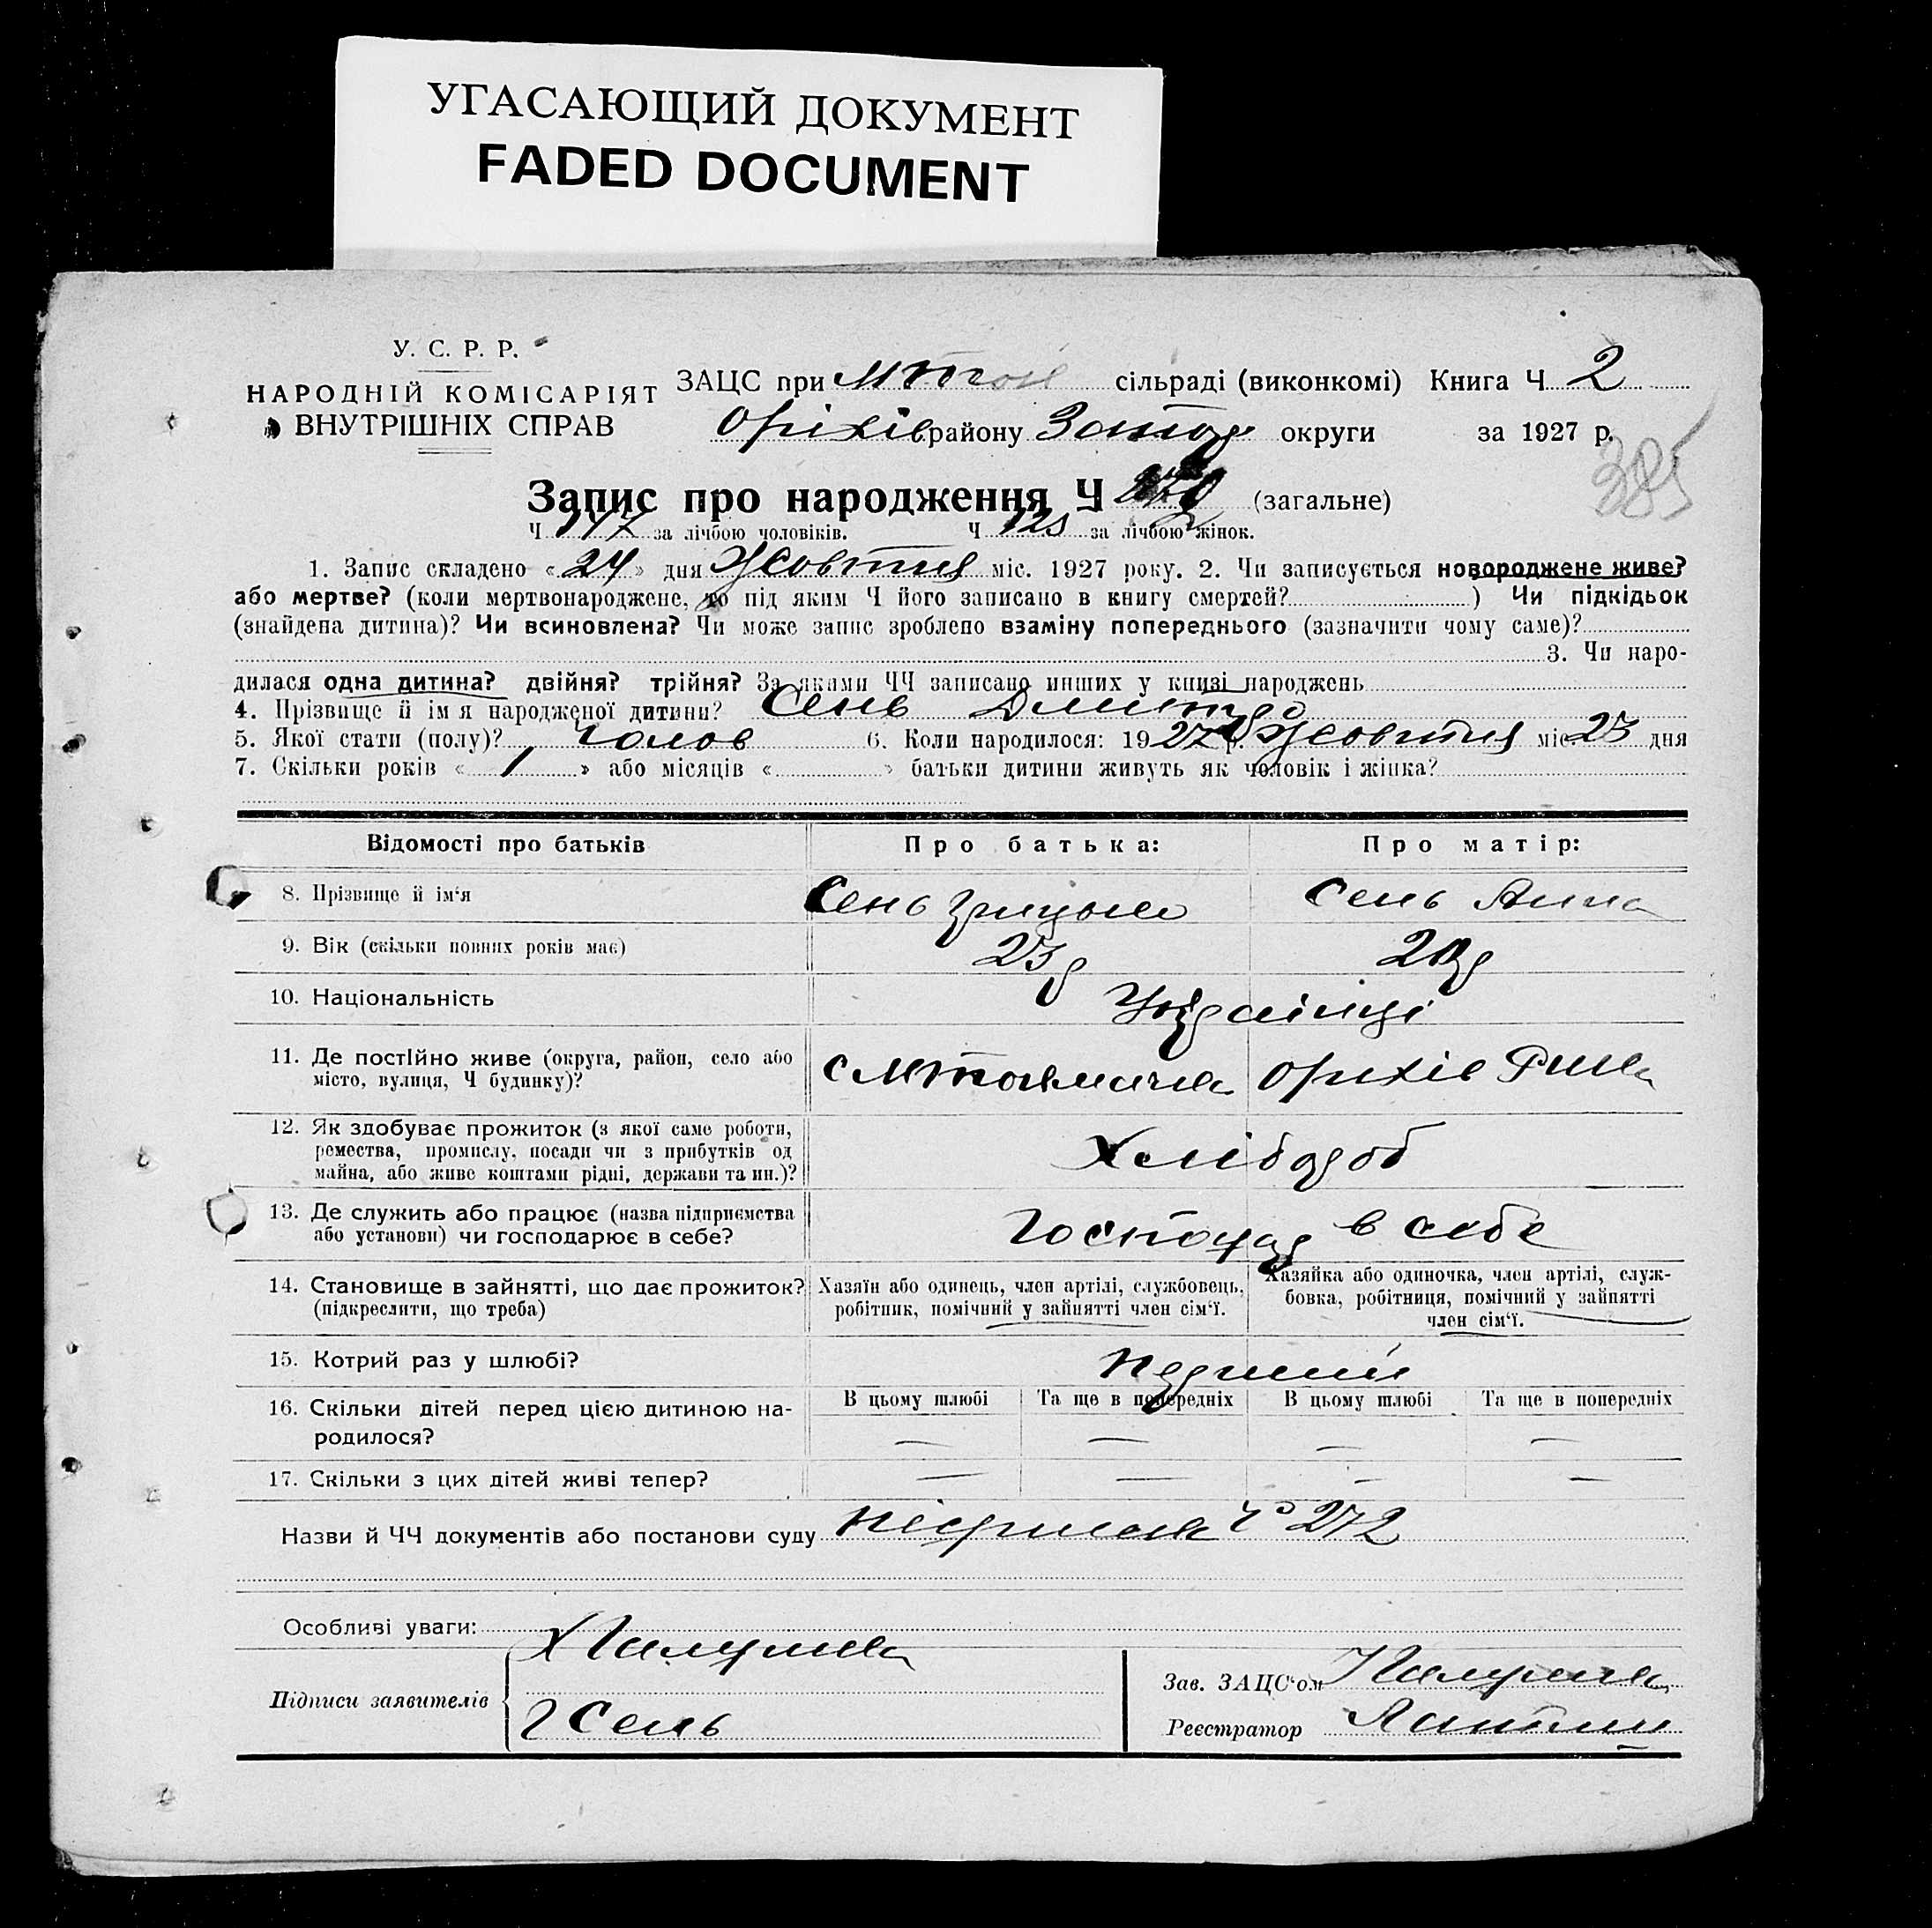 УГАСАЮЩИЙ ДОКУМЕНТ
FADED DOCUMENT
У. С. Р. Р.
НАРОДНІЙ КОМІСАРІЯТ
ВНУТРІШНІХ СПРАВ
ЗАЦС при МТок сільраді (виконкомі) Книга Ч 2
Оріхів району Запор округи за 1927 р.
385
Запис про народження Ч (загальне)
Ч 147 за лічбою чоловіків. Ч 123 за лічбою жінок.
1. Запис складено « 24 » дня Жовтня міс. 1927 року. 2. Чи записується новороджене живе?
або мертве? (коли мертвонароджене, то під яким Ч його записано в книгу смертей? ) Чи підкідьок
(знайдена дитина)? Чи всиновлена? Чи може запис зроблено взаміну попереднього (зазначити чому саме)?
3. Чи наро-
дилася одна дитина? двійня? трійня? За якими ЧЧ записано инших у книзі народжень
4. Прізвище й ім я народженої дитини? Сень Дмитро
5. Якої стати (полу)? Чолов 6. Коли народилося: 1927 р. Жовтня міс. 23 дня
7. Скільки років « 1 » або місяців « » батьки дитини живуть як чоловік і жінка?
Відомості про батьків Про батька: Про матір:
8. Прізвище й ім‘я Сень Грицько Сень Анна
9. Вік (скільки повних років має) 23 р
10. Національність Українці
11. Де постійно живе (округа, район, село або
місто, вулиця, Ч будинку)? с МТокмачка Оріхів Р-на
12. Як здобуває прожиток (з якої саме роботи,
ремества, промислу, посади чи з прибутків од
майна, або живе коштами рідні, держави та ин.)? Хлібороб
13. Де служить або працює (назва підприємства
або установи) чи господарює в себе? Господар в себе
14. Становище в зайнятті, що дає прожиток?
(підкреслити, що треба)
Хазяїн або одинець, член артілі, службовець,
робітник, помічний у зайнятті член сім‘ї.
Хазяйка або одиночка, член артілі, служ-
бовка, робітниця, помічний у зайнятті
член сім‘ї.
15. Котрий раз у шлюбі? Перший
16. Скільки дітей перед цією дитиною на-
родилося?
В цьому шлюбі Та ще в попередніх В цьому шлюбі Та ще в попередніх
— — — —
17. Скільки з цих дітей живі тепер? — — — —
Назви й ЧЧ документів або постанови суду Ч 272
Особливі уваги:
Підписи заявителів
Г Сень
Зав. ЗАЦС‘ом
Реєстратор